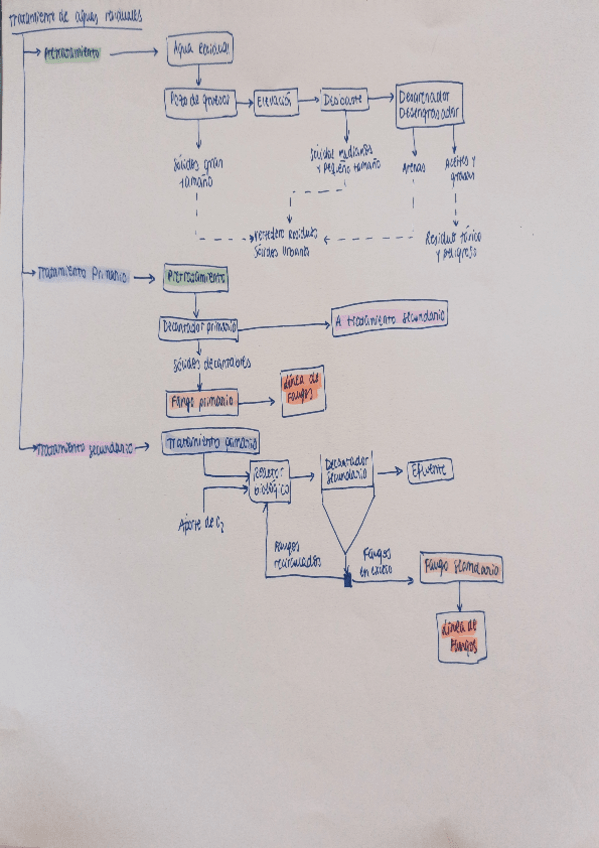 Tratamiento de aguas residuales
Pretratamiento
Agua residual
Pozo de gruesos
Elevación
Desbaste
Desarenador
Desengrasador
Sólidos gran
tamaño
Sólidos medianos
y pequeño tamaño
Arenas
Aceites y
grasas
Vertedero Residuos
Sólidos Urbanos
Residuo tóxico
y peligroso
Tratamiento Primario
Pretratamiento
Decantador primario
A tratamiento secundario
Sólidos decantables
Fango primario
Línea de
Fangos
Tratamiento secundario
Tratamiento primario
Reactor
biológico
Decantador
Secundario
Efluente
Aporte de
Fangos
recirculados
Fangos
en exceso
Fango Secundario
Línea de
Fangos